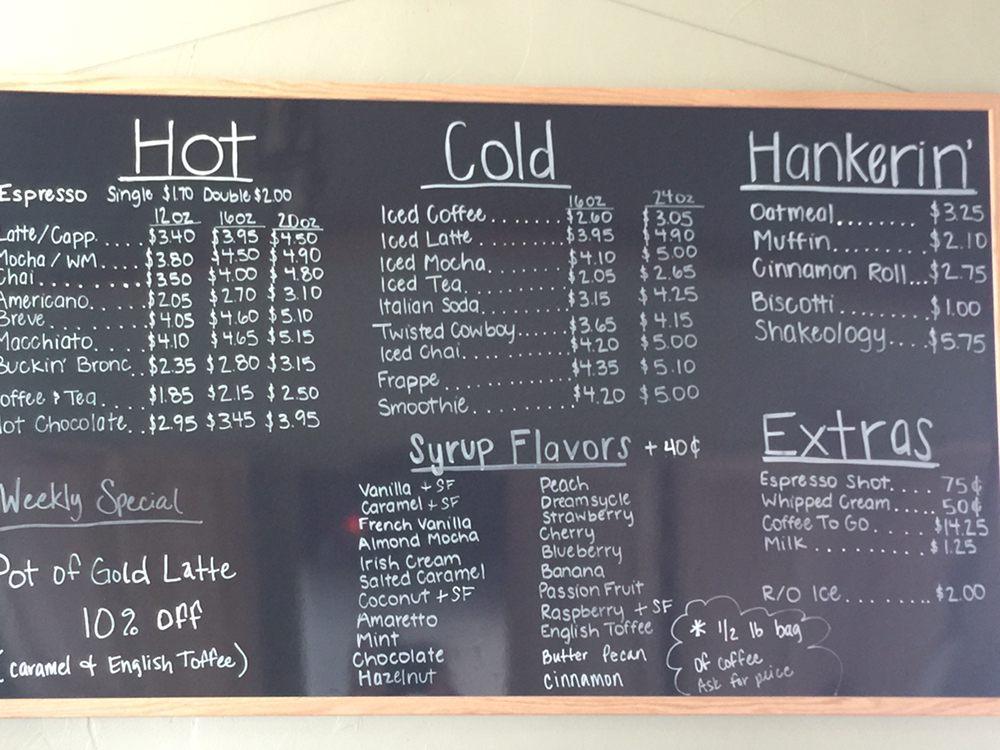 Hot
Espresso Single $1.70 Double $2.00
12oz 16oz 20oz
Latte/Capp..... $3.40 $3.95 $4.50
Mocha/WM.... $3.80 $4.50 $4.90
Chai......... $3.50 $4.00 $4.80
Americano...... $2.05 $2.70 $3.10
Breve......... $4.05 $4.60 $5.10
Macchiato..... $4.10 $4.65 $5.15
Buckin' Bronc.. $2.35 $2.80 $3.15
offee & Tea.... $1.85 $2.15 $2.50
Hot Chocolate... $2.95 $345 $3.95
Weekly Special
Pot of Gold Latte
10% off
(caramel & English Toffee)
Cold
16oz 24oz
Iced Coffee........ $2.60 $3.05
Iced Latte......... $3.95 $4.90
Iced Mocha........ $4.10 $5.00
Iced Tea.......... $2.05 $2.65
Italian Soda....... $3.15 $4.25
Twisted Cowboy..... $3.65 $4.15
Iced Chai.......... $4.20 $5.00
Frappe............ $4.35 $5.10
Smoothie.......... $4.20 $5.00
Syrup Flavors + 40¢
Vanilla + SF
Caramel + SF
French Vanilla
Almond Mocha
Irish Cream
Salted Caramel
Coconut + SF
Amaretto
Mint
Chocolate
Hazelnut
Peach
Dreamsycle
Strawberry
Cherry
Blueberry
Banana
Passion Fruit
Raspberry + SF
English Toffee
Butter Pecan
Cinnamon
Hankerin'
Oatmeal........ $3.25
Muffin......... $2.10
Cinnamon Roll... $2.75
Biscotti......... $1.00
Shakeology.... $5.75
Extras
Espresso Shot..... 75¢
Whipped Cream..... 50¢
Coffee To Go...... $14.25
Milk........... $1.25
R/O Ice......... $2.00
* 1/2 lb bag
of coffee
Ask for price